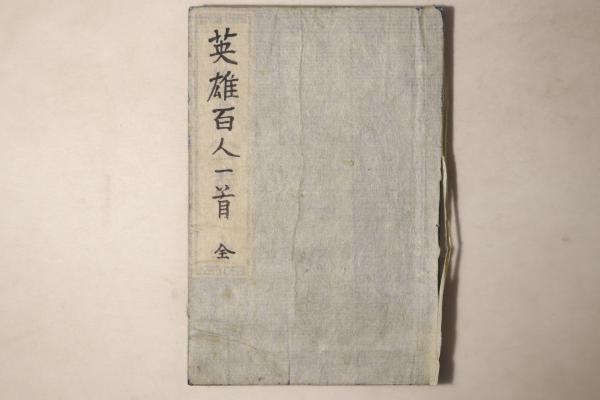 英雄百人一首 全